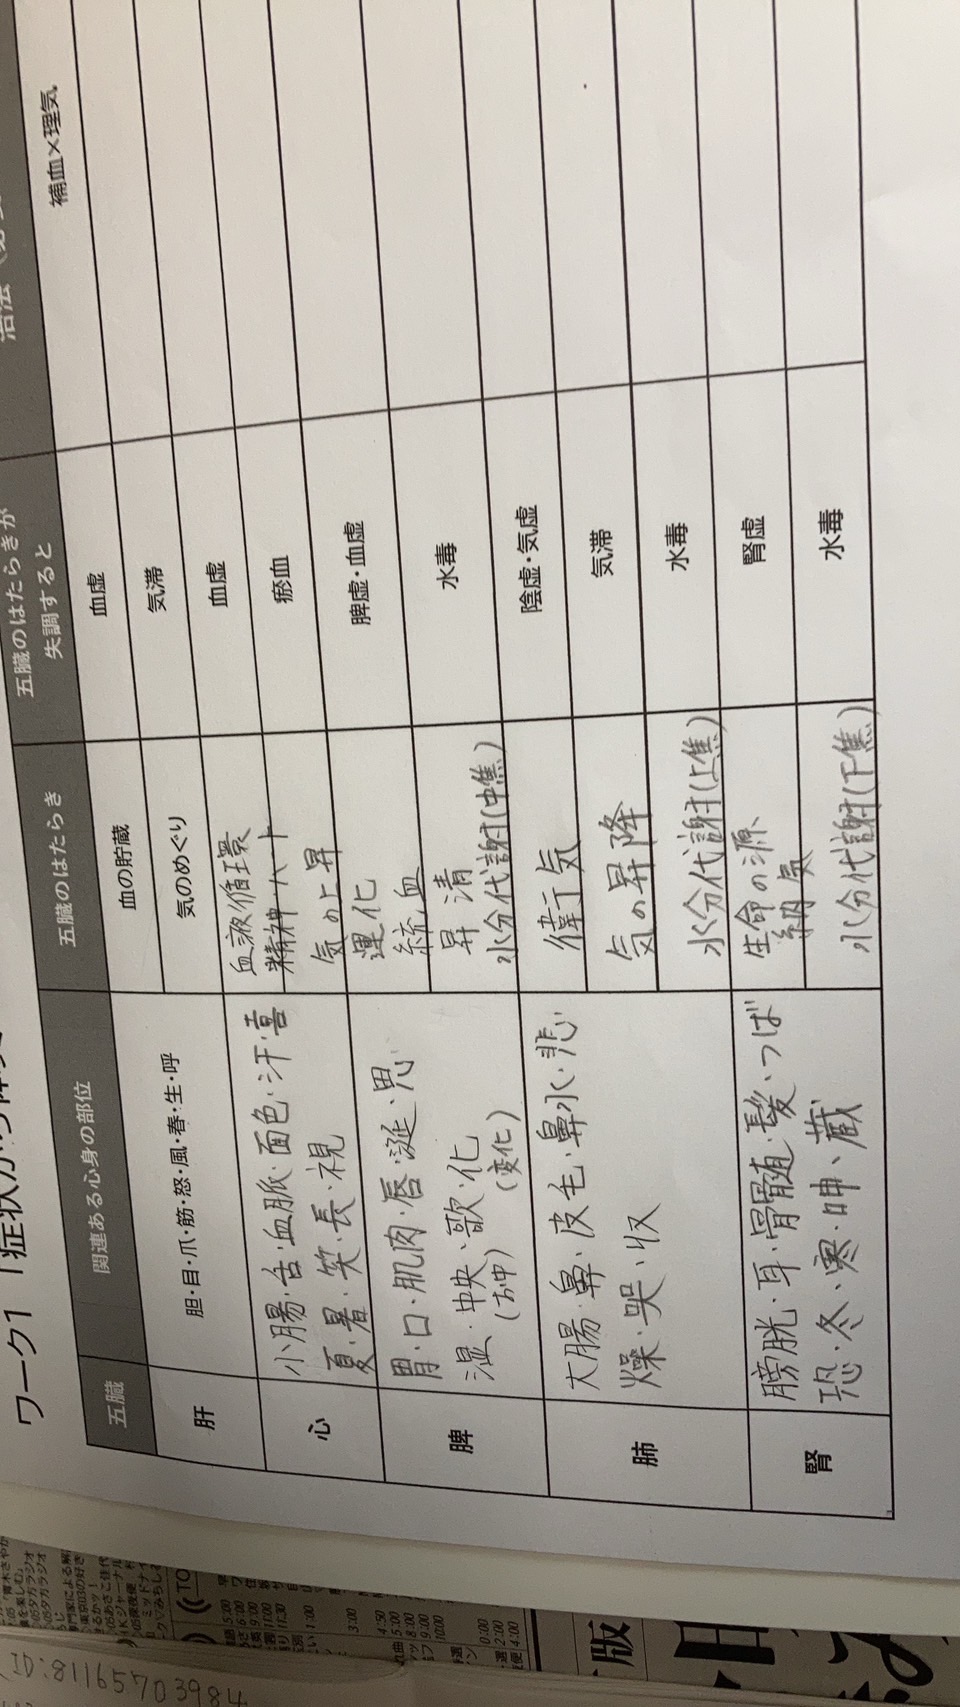 ワーク1
五臓 関連ある心身の部位 五臓のはたらき 五臓のはたらきが
失調すると
肝 胆・目・爪・筋・怒・風・春・生・呼 血の貯蔵 血虚 補血×理気
気のめぐり 気滞
心 小腸・舌・血脈・面色・汗・喜
夏・暑・笑・長・視
血液循環 血虚
精神・ハート
気の上昇 瘀血
脾 胃・口・肌肉・唇・涎・思
湿・中央、歌・化
(お中) (変化)
運化
統血 脾虚・血虚
昇清
水分代謝(中焦) 水毒
肺 大腸・鼻・皮毛・鼻水・悲
燥・哭・収
衛気 陰虚・気虚
気の昇降 気滞
水分代謝(上焦) 水毒
腎 膀胱・耳・骨髄・髪・つば
恐・冬・寒・呻、蔵
生命の源、
納気 腎虚
水分代謝(下焦) 水毒
ID:81165703984
5:00
6:00
9:00
11:00
11:30
1:00
3:00
4:50
5:00
8:00
9:00
10:00
0:00
2:00
4:00
版